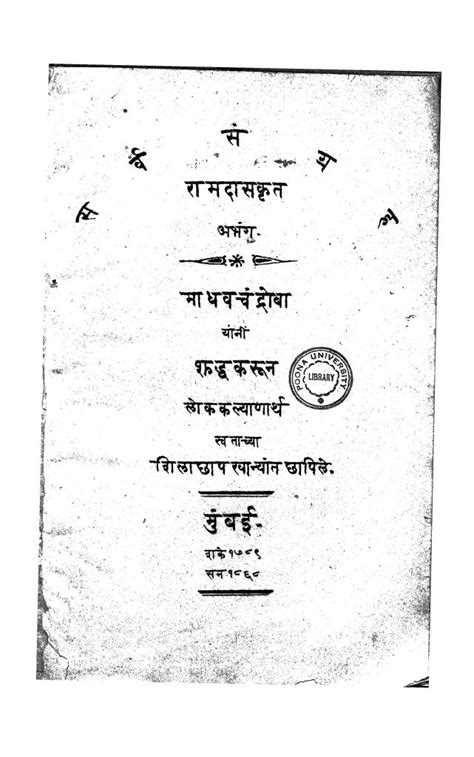 सर्वसंग्रह
रामदासकृत
अभंग.
माधवचंद्रोबा
यांनीं
शुद्धकरून
लोककल्याणार्थ
स्वताच्या
शिलाछापखान्यांत छापिले.
POONA UNIVERSITY
LIBRARY
मुंबई.
शके १७८९
सन १८६८